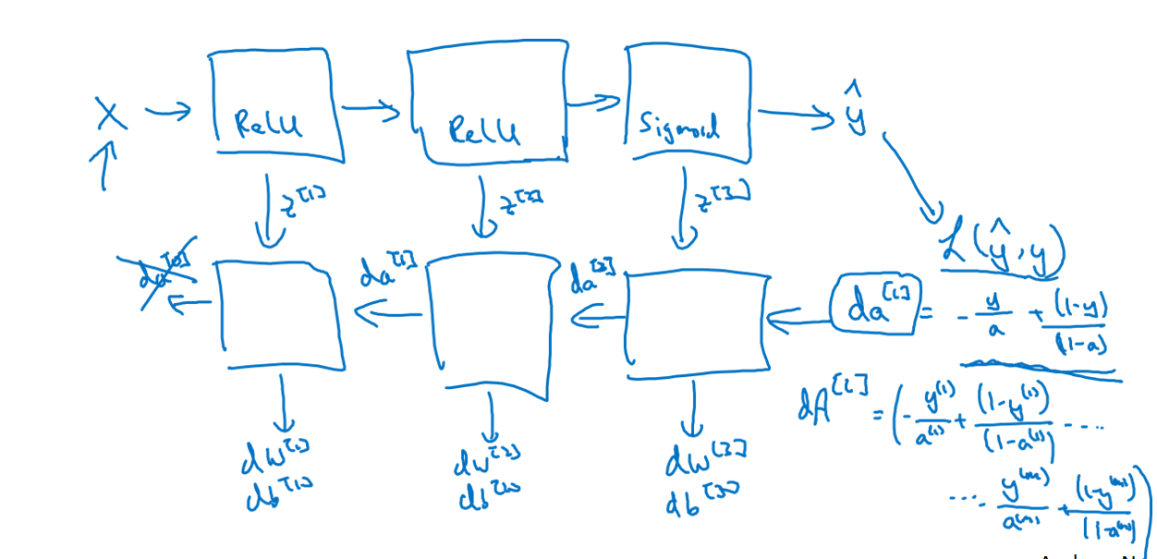 X → ReLU → ReLU → Sigmoid → ŷ
z^[1] z^[2] z^[3]
L(ŷ, y)
da^[0] da^[1] da^[2] da^[L] = - y/a + (1-y)/(1-a)
dA^[L] = (- y^(1)/a^(1) + (1-y^(1))/(1-a^(1)) ....
.... y^(m)/a^(m) + (1-y^(m))/(1-a^(m)))
dw^[1] dw^[2] dw^[3]
db^[1] db^[2] db^[3]